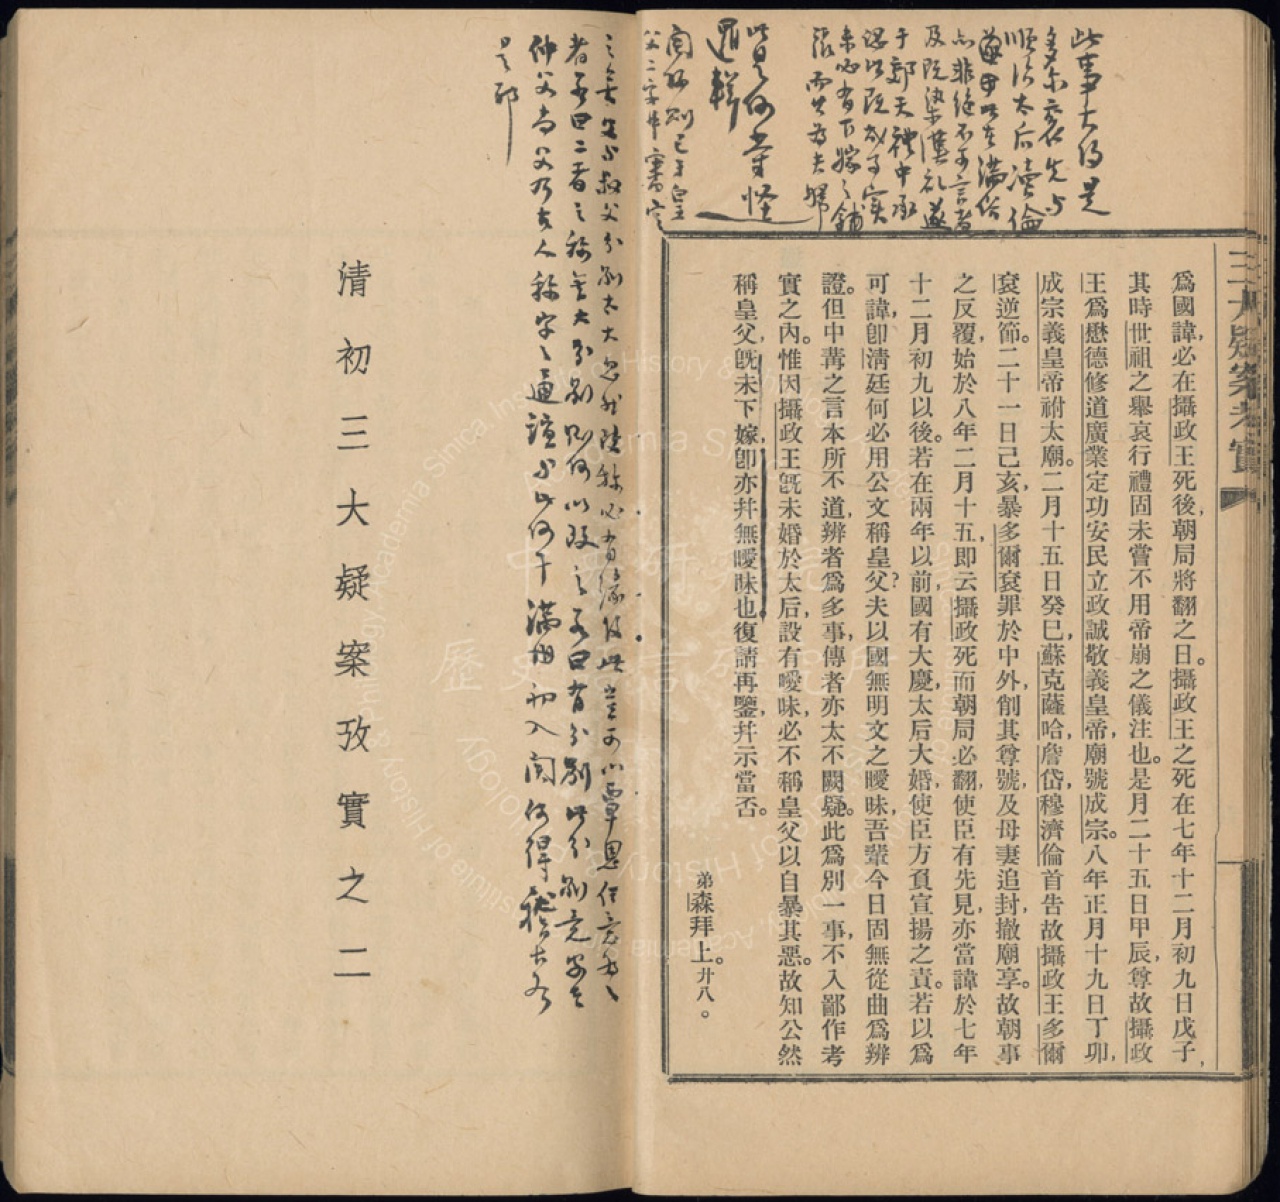 此事大約是
多爾袞先與
順治太后瀆倫
滿俗
亦非絕不可言者
及既染漢化遂
于郊天禮中承
認此既成事實
未必有下嫁之鋪
張而其為夫婦
此是何等怪
邏輯
三大疑案考實
爲國諱,必在攝政王死後,朝局將翻之日。攝政王之死在七年十二月初九日戊子,
其時世祖之舉哀行禮固未嘗不用帝崩之儀注也。是月二十五日甲辰,尊故攝政
王爲懋德修道廣業定功安民立政誠敬義皇帝,廟號成宗。八年正月十九日丁卯,
成宗義皇帝祔太廟。二月十五日癸巳,蘇克薩哈,詹岱,穆濟倫首告故攝政王多爾
袞逆節。二十一日己亥,暴多爾袞罪於中外,削其尊號及母妻追封,撤廟享。故朝事
之反覆始於八年二月十五,即云攝政死而朝局必翻,使臣有先見,亦當諱於七年
十二月初九以後。若在兩年以前,國有大慶,太后大婚,使臣方負宣揚之責。若以爲
可諱,卽清廷何必用公文稱皇父?夫以國無明文之曖昧,吾輩今日固無從曲爲辨
證。但中冓之言本所不道,辨者爲多事,傳者亦太不闕疑。此爲別一事,不入鄙作考
實之內。惟因攝政王旣未婚於太后,設有曖昧,必不稱皇父以自暴其惡。故知公然
稱皇父,旣未下嫁,卽亦幷無曖昧也。復請再鑒,幷示當否。
弟森拜上。廿八。
者若曰二者之稱無大分別則何以改之若曰有分別此分別究安在
仲父尚父乃古人稱字之通誼與此何干滿洲初入關何得襲古乃
是耶
清初三大疑案攷實之二
中央研究院
歷史語言研究所
Institute of History & Philology, Academia Sinica